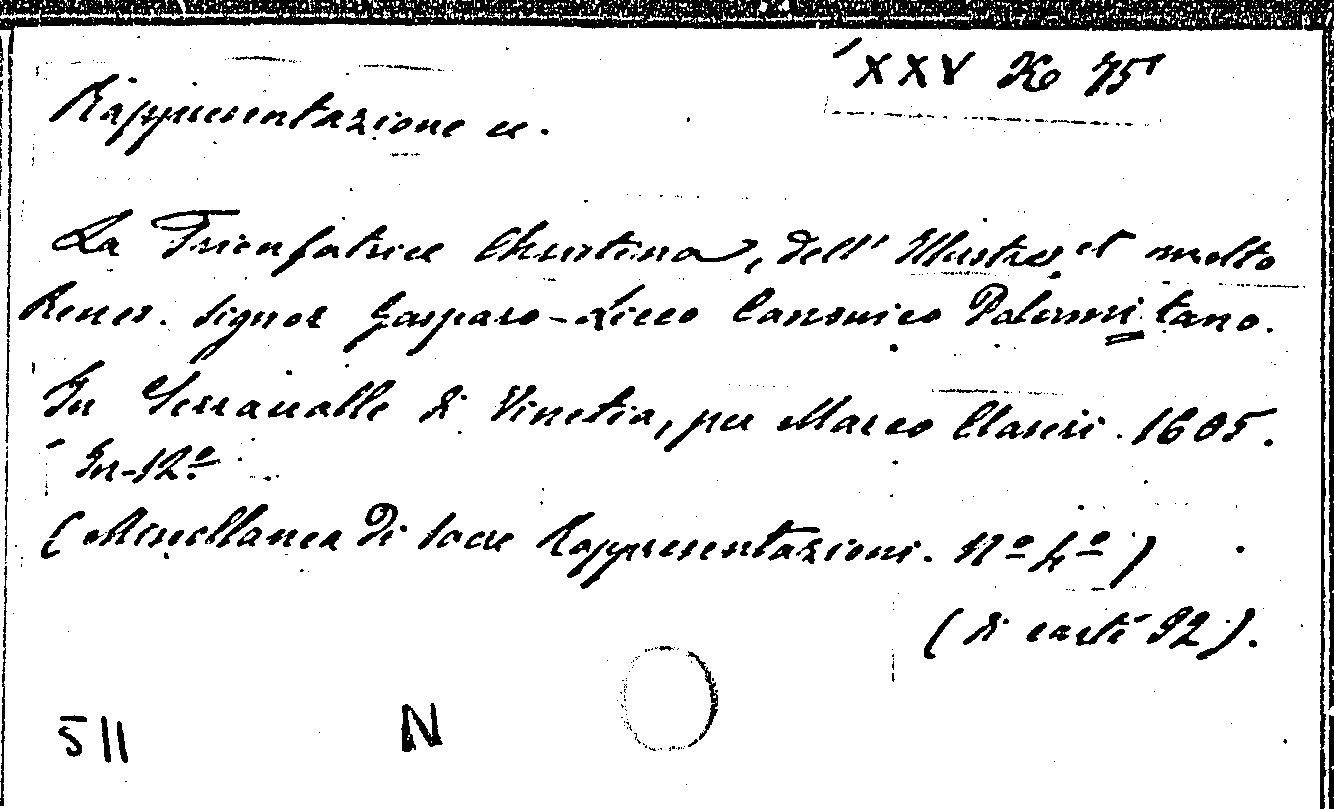 XXV 75
Rappresentazione ec.
La Trionfatrice Christina, dell' Illustre et molto
Rever. signor Gasparo Licco Canonico Palermitano.
In Serravalle di Vinetia, per Marco Claseri. 1605.
In-12º
(Miscellanea di sacre Rappresentazioni. Nº 4º)
(di carte 92).
511 N